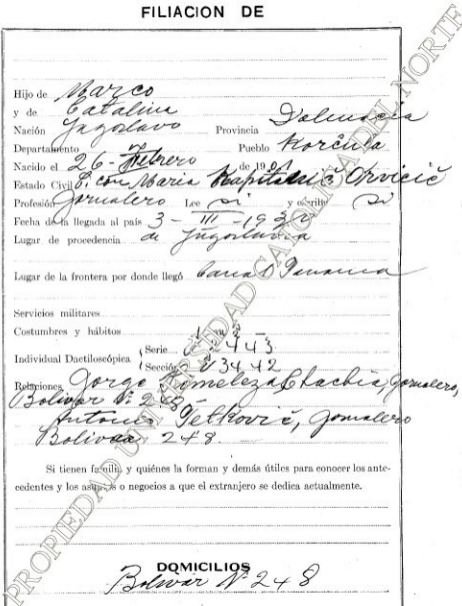 FILIACION DE
Hijo de Marco
y de Catalina
Nación Jugoslavo Provincia Dalmacia
Departamento Pueblo Korčula
Nacido el 26-Febrero de 1901
Estado Civil C. con Maria Orvicič
Profesión Jornalero Lee si y escribe Si
Fecha de la llegada al país 3-III-193
Lugar de procedencia de Jugoslavia
Lugar de la frontera por donde llegó Canal Panama
Servicios militares
Costumbres y hábitos
Individual Dactiloscópica Serie 443
Sección V 34.42
Relaciones Jorge Jornalero,
Bolivar N° 248
Antonio Petkovič, Jornalero
Bolivar 248.
Si tienen familia y quiénes la forman y demás útiles para conocer los ante-
cedentes y los asuntos o negocios a que el extranjero se dedica actualmente.
DOMICILIOS
Bolivar N° 248
PROPIEDAD UNIVERSIDAD CATOLICA DEL NORTE